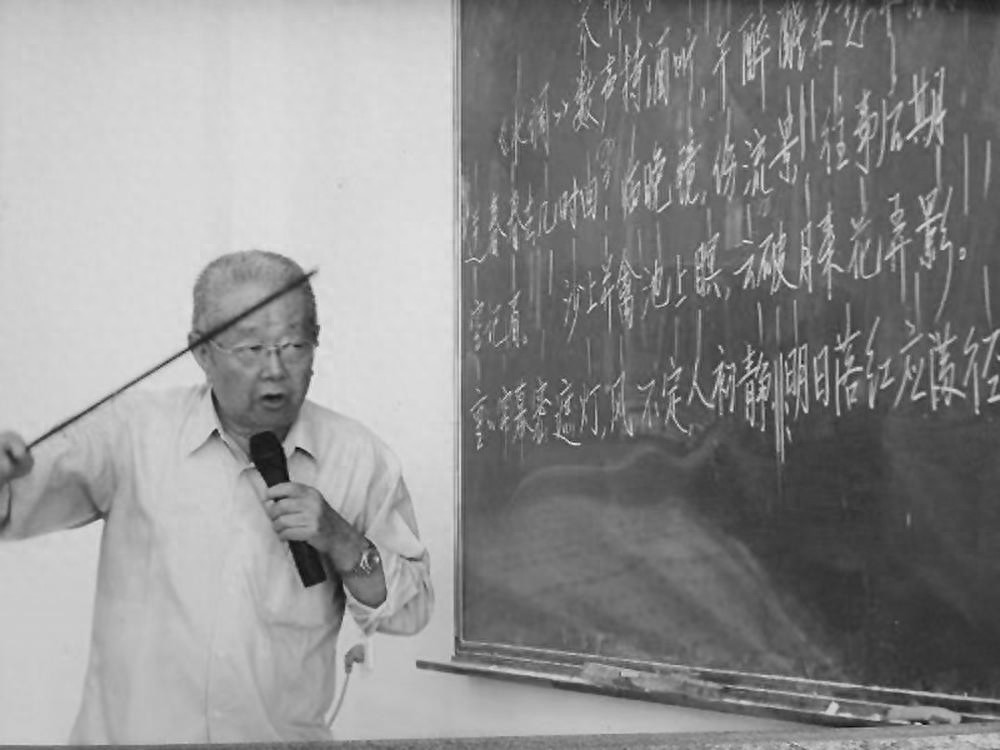 天仙子
《水调》数声持酒听,午醉醒来
送春春去几时回,临晚镜,伤流景,往事后期
空记省。 沙上并禽池上暝,云破月来花弄影。
重々帘幕密遮灯,风不定,人初静,明日落红应满径